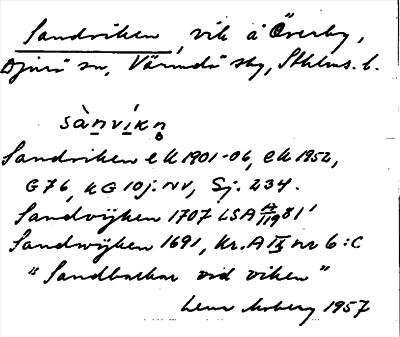 Sandviken, vik å Överby,
Djurö sn, Värmdö sky, Sthlms. l.
sànvíkn̥
Sandviken ek 1901-06, ek 1952,
G 76, KG 10j. NV, Sj. 234.
Sandvijken 1707 LSA A/119 81'
Sandwijken 1691, Kr. A IX nr 6:C
"Sandbackar vid viken"
Moberg 1957